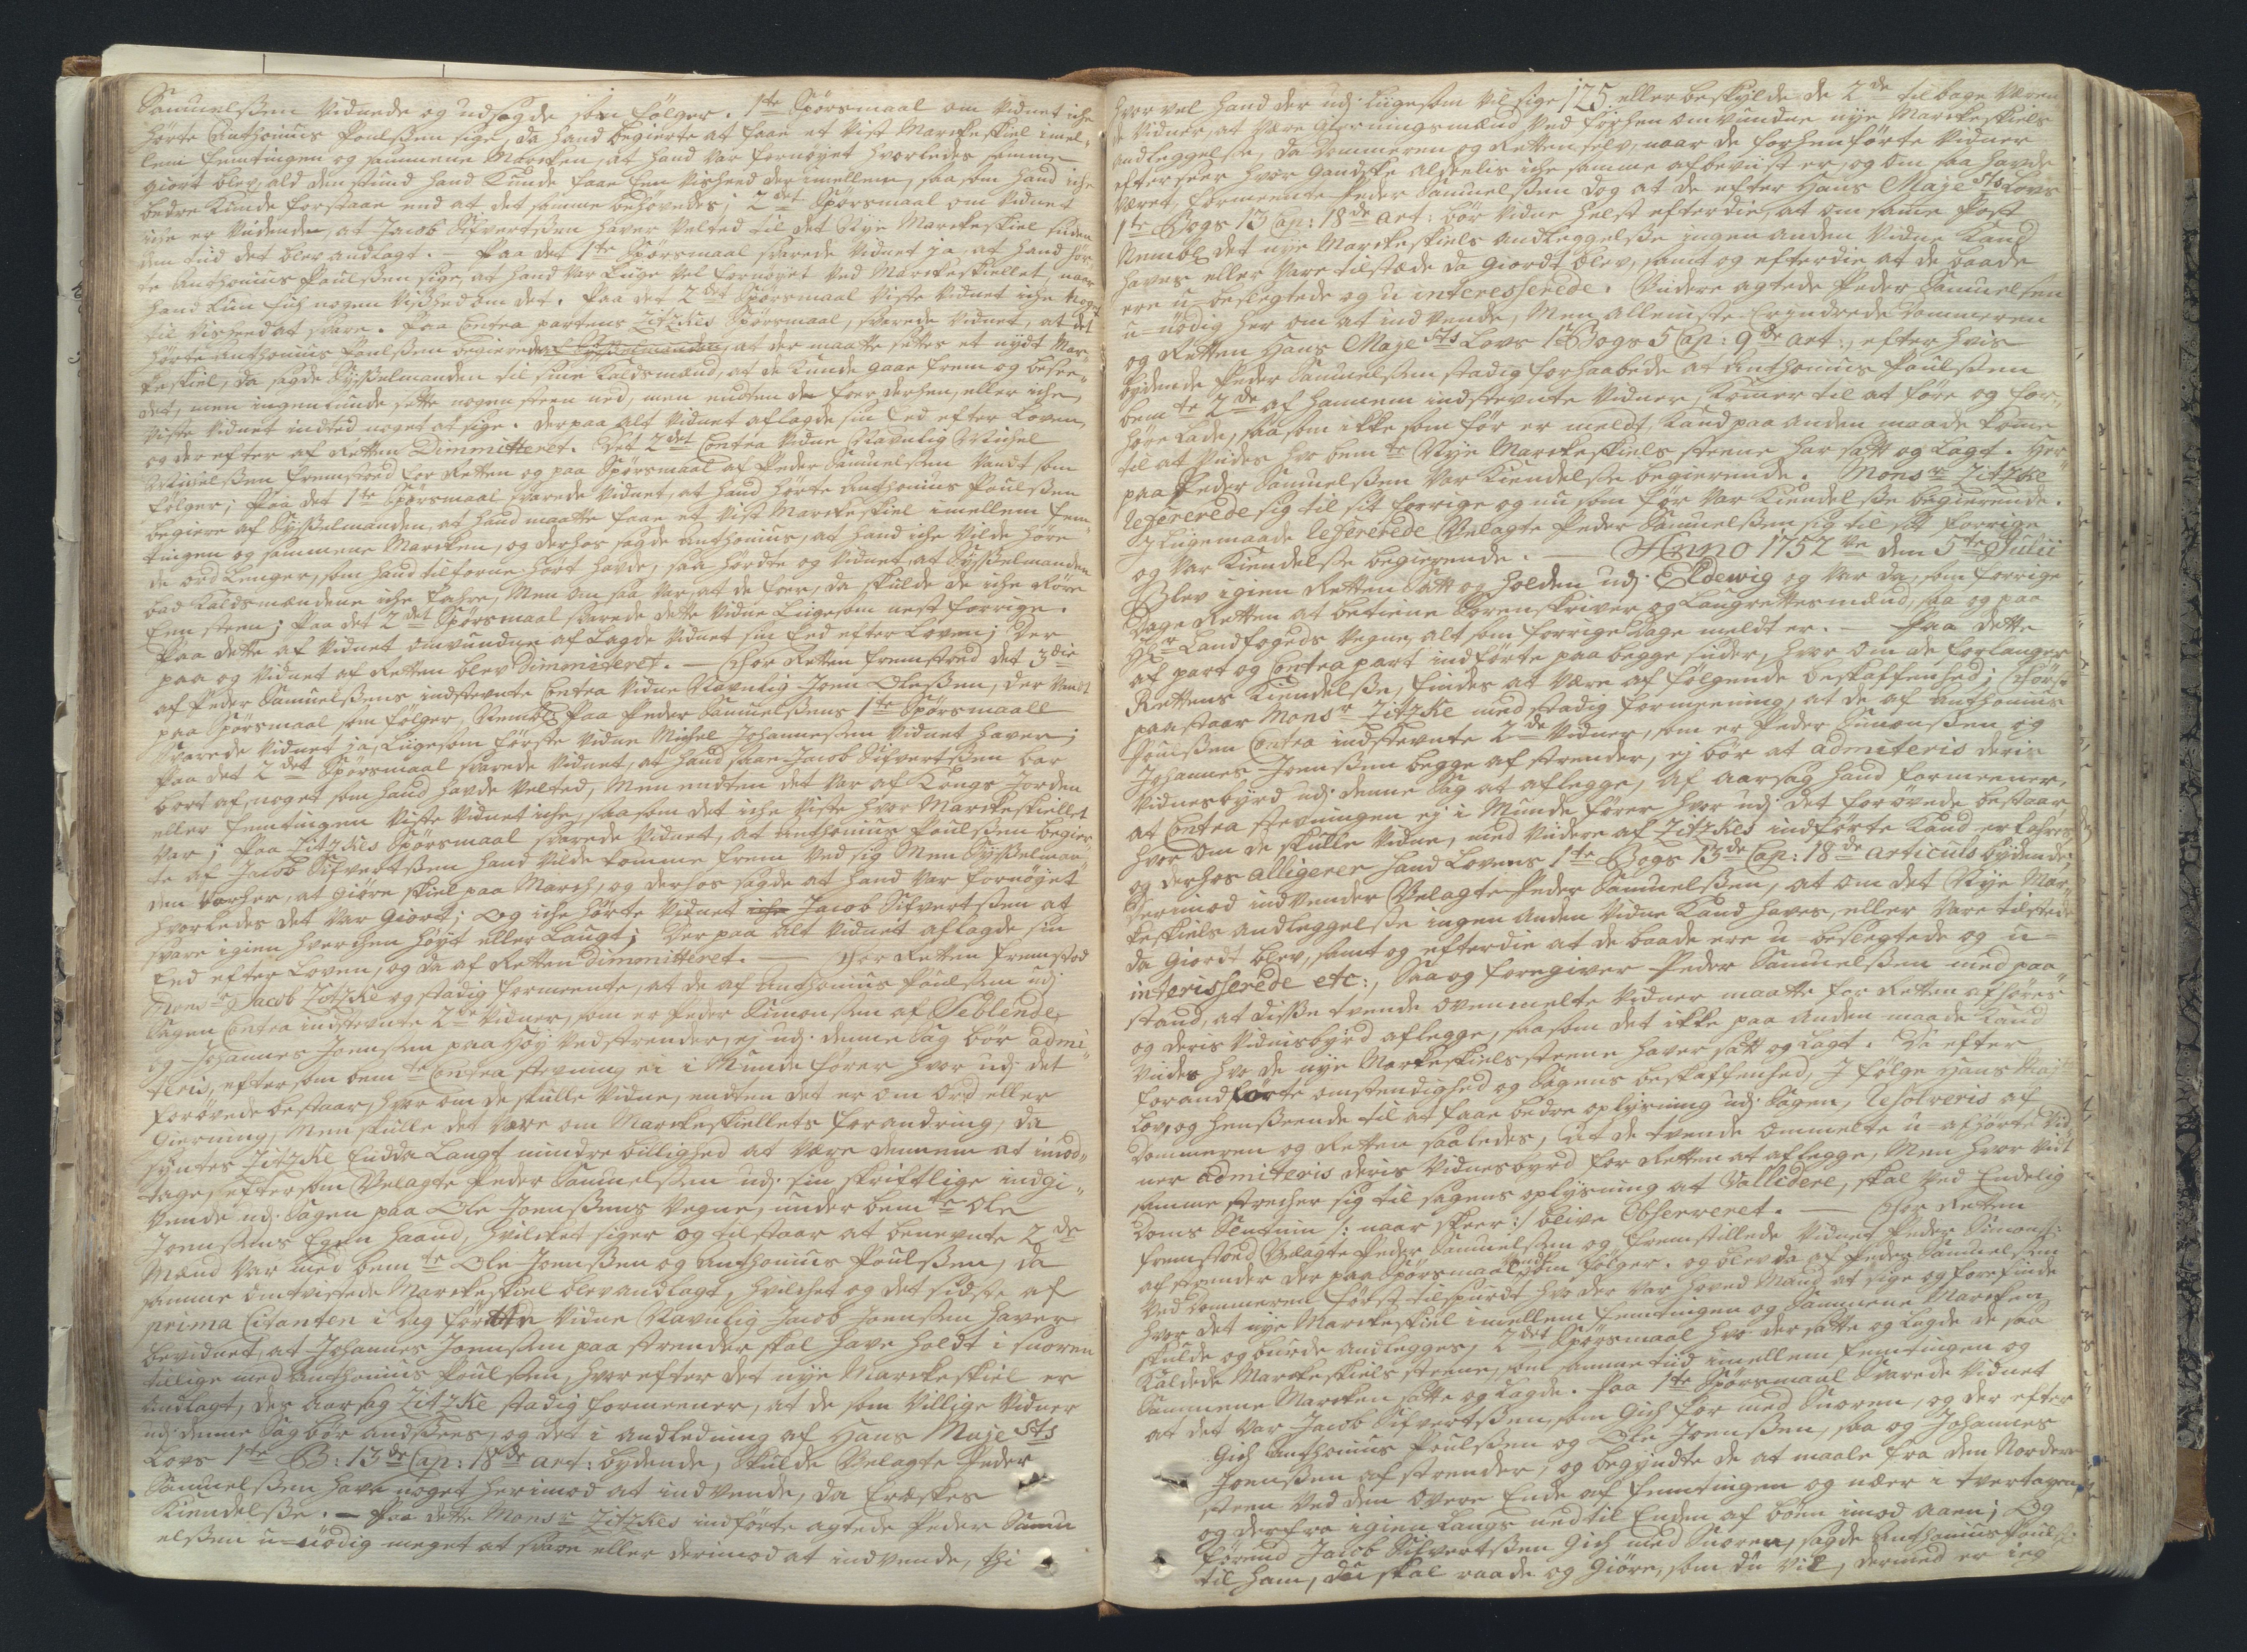 Samuelssen Vidnede og udsagde som følger. 1te Spörsmaal om Vidnet ike
hørte Anthonius Poulssen sige, da hand begierte at faae et Vist Marckeskiel imel-
lem femtingen og sammene Marcken, at hand Var fornøyet hvorledes samme
giort blev, ald den stund hand Kunde faae Een Vished der imellem, saasom hand icke
bedre Kunde forstaae end at det samme behövedes; 2det Spörsmaal om Vidnet
icke er Vidende, at Jacob Sifvertssen haver Velted til det Nye Marckeskiel siden
den tiid det blev andlagt. — Paa det 1te Spörsmaal svarede Vidnet ja, at hand hør-
te Anthonius Poulssen sige, at hand Var Liige Vel fornøyet Ved Marckeskiellet, naar
hand kun fik nogen Vished om det. Paa det 2det Spörsmaal Viste Vidnet icke nogen
til Vished at svare. Paa Contra partens Zitzkes Spörsmaal, svarede Vidnet, at det
hørte Anthonius Poulssen begierede af Sysselmanden, at der maatte settes et nyt Mar-
keskiel, da sagde Sysselmanden til sine Kaldsmænd, at de Kunde gaae frem og besee
det, men ingenlunde sette nogen steen ned, men endten de foer derhen, eller icke,
Viste Vidnet intet noget at sige. Derpaa alt Vidnet aflagde sin Eed efter Loven,
og derefter af Retten Dimmitteret. Det 2det Contra Vidne Navnlig Michel
Michelssen fremstoed for Retten og paa Spörsmaal af Peder Samuelssen Vandt som
følger; Paa det 1te Spörsmaal svarede Vidnet, at hand hørte Anthonius Poulssen
begiere af Sysselmanden, at hand maatte faae et Vist Marckeskiel imellem fem-
tingen og sammene Marcken, og derhos sagde Anthonius, at hand icke Vilde høre
de ord Lenger, som hand tilforne hørt havde, saa hørdte og Vidnet, at Sysselmanden
bad Kaldsmændene icke fahre, Men om saa Var, at de foer, da skulde de icke Röre
Een steen; Paa det 2det Spörsmaal svarede dette Vidne Liigesom nest forrige.
Paa dette af Vidnet omvundne aflagde Vidnet sin Eed efter Loven; Der
paa og Vidnet af Retten blev Dimmiteret. — For Retten fremstoed det 3die
af Peder Samuelssens indstevnte Contra Vidne Navnlig Joen Olessen, der Vandt
paa Spörsmaal som følger, Nembl. Paa Peder Samuelssens 1te Spörsmaall
Svarede Vidnet ja, Liigesom første Vidne Michel Johannessen Vidnet haver;
Paa det 2det Spörsmaal svarede Vidnet, at hand saae Jacob Sifvertssen bar
bort af, noget som hand havde Velted, Men endten det Var af Kongs Jorden
eller femtingen Viste Vidnet icke, saasom det icke Viste hvor Marckeskiellet
Var; Paa Zitzkes Spörsmaal svarede Vidnet, at Anthonius Poulssen begier-
te af Jacob Sifvertssen hand Vilde komme frem Ved sig Men Sysselman-
den barher, at giøre skiel paa March, og derhos sagde at hand Var fornøyet
hvorledes det Var giort; Og icke hørte Vidnet icke Jacob Sifvertssen at
svare igien hverchen høyt eller Laugt; Der paa alt Vidnet aflagde sin
Eed efter Loven, og da af Retten dimmitteret. — For Retten fremstod
Monsr Jacob Zitzke og stadig formeente, at de af Anthonius Poulssen udj
Sagen Contra indstevnte 2de Vidner, som er Peder Simonssen af Selblende
og Johannes Joenssen paa Høy Ved strender, ej udj denne Sag bör admi-
teris, eftersom bemte Contra stevning ei i Munde fører hvor udj det
forøvede bestaar, hvor om de skulle Vidne, endten det er om Ord eller
Gierning, Men skulle det Være om Marckeskiellets forandring, da
syntes Zitzke Endda Langt mindre billighed at Være dennem at imod-
tage, eftersom Velagte Peder Samuelssen udj sin skriftlige indgi-
vende udj Sagen paa Ole Joenssens Vegne, under bemte Ole
Joenssens Egen haand, hvilcket siger og tilstaar at benevnte 2de
Mænd Var med bemte Ole Joenssen og Anthonius Poulssen, da
samme omtvistede Marckeskiel blev andlagt, hvilchet og det sidste af
prima Citanten i Dag førte Vidne Navnlig Jacob Joenssen haver
bevidnet, at Johannes Joenssen paa strender skal have holdt i snoren
tillige med Anthonius Poulssen, hvorefter det nye Marckeskiel er
andlagt, des aarsag Zitzke stadig formeener, at de som Villige Vidner
udj denne Sag bör andsees, og det i andledning af Hans Maje sts
Lovs 1te B: 13de Cap: 18de art: bydende, Skulde Velagte Peder
Samuelssen have noget herimod at indvende, da Eræskes
Kiendelsse. — Paa dette Monsr Zitzkes indførte agtede Peder Samu
elssen u-nödig meget at svare eller derimod at indvende, thi
hvor vel hand der udj Liigesom Vil sige 125. eller beskylde de 2de tilbage Væren
de Vidner, at Være Gierningsmænd Ved forhen omvundne nye Marckeskiels
andleggelse, da dommeren og Retten selv, naar de forhenførte Vidner
efterseer hvor gandske aldeelis icke samme afbeviist er, og om saa havde
Været, formeente Peder Samuelssen dog at de efter Hans Maje sts Lovs
1te Bogs 13 Cap: 18de art: bör Vidne helst efterdie, at om samme Post
Nembl. det nye Marckeskiels andleggelsse ingen anden Vidne Kand
haves eller Vare tilstæde da giordt blev, samt og efterdie at de baade
ere u-beslegtede og u interesserede. Videre agtede Peder Samuelssen
u-nödig her om at indvende, Men alleeniste Erindrede Dommeren
og Retten Hans Maje sts Lovs 1te Bogs 5 Cap: 9de art:, efter hvis
bydende Peder Samuelssen stadig forhaabede at Anthonius Poulssen
bemte 2de af hannem indstevnte Vidner, Komer til at føre og for-
høre Lade, saasom ikke som før er meldt, Kand paa anden maade kome
til at Viides hvo bemte Nye Marckeskiels steene har satt og Lagt. Her
paa Peder Samuelssen Var Kiendelsse begierende. Monsr Zitzke
Refererede sig til sit forrige og nu som før Var Kiendelsse begierende.
I Liigemaade Refererede Velagte Peder Samuelssen sig til sit forrige
og Var Kiendelsse begierende. — Anno 1752 ve den 5te Julii
Blev igien Retten Satt og holden udj Eldewig og Var da, som forrige
Dage Retten at betiene Sorenskriver og Laugrettesmænd, saa og paa
Hr Landfogeds Vegne, alt som forrige Dage meldt er. — Paa dette
af part og Contrapart indførte paa begge sider, hvor om de forlanger
Rettens Kiendelsse, findes at Være af følgende beskaffenhed; Først
paastaar Monsr Zitzke med stadig formeening, at de af Anthonius
Poulssen Contra indstevnte 2de Vidner, som er Peder Simonssen og
Johannes Joenssen begge af strender, ej bör at admiteris deris
Vidnesbyrd udj denne Sag at aflegge, Af aarsag hand formeener,
at Contra stevningen ej i Munde fører hvor udj det forövede bestaar
hvor om de skulle Vidne, med Videre af Zitzkes indførte Kand erfahres
og derhos alligerer hand Lovens 1te Bogs 13de Cap: 18de articuls bydende.
Derimod indvender Velagte Peder Samuelssen, at om det Nye Mar-
keskiels andleggelsse ingen anden Vidne Kand haves, eller Vare tilstede
da giordt blev, samt og efterdie at de baade ere u-beslegtede og u-
interisserede etc:, Saa og foregiver Peder Samuelssen med paa
stand, at disse tvende ovenmelte Vidner maatte for Retten afhøres
og deris Vidnisbyrd aflegge, saasom det ikke paa anden maade Kand
Viides hvo de nye Markeskiels steene haver satt og Lagt. Da efter
forandførte omstendighed og Sagens beskaffenhed, I følge Hans Majts
Lov, og henseende til at faae bedre oplysning udj Sagen, Resolveris af
Dommeren og Retten saaledes, at de tvende Ommelte u-afhørte Vid-
ner admiteris deris Vidnesbyrd for Retten at aflegge, Men hvor Vidt
samme strecher sig til sagens oplysning at Vallidere, skal Ved Endelig
Doms Sentuim /: naar skeer :/ blive Observeret. — For Retten
fremstoed Velagte Peder Samuelssen og fremstillede Vidnet Peder Simonss:
af strender der paa Spörsmaal Vandt som følger. og blev da af Peder Samuelssen
Ved Dommeren først tilspurdt hvo der Var hoved Mand at sige og forefinde
hvor det nye Marckeskiel imellem femtingen og Sammene Marcken
skulde og burde andlegges, 2det Spörsmaal hvo der satte og Lagde de saa
Kaldede Marckeskiels steene, som samme tiid imellem femtingen og
Sammene Marcken satte og Lagde. Paa 1te Spörsmaal Svarede Vidnet
at det Var Jacob Sifvertssen, som Gich for med Snoren, og der efter
Gich Anthonius Poulssen og Ole Joenssen, saa og Johannes
Joenssen af strender, og begyndte de at maale fra den Nordere
steen Ved den övere Ende af femtingen og nær i tvert ageren
og derfra igien Langs ned til Enden af böen imod aaen; Og
førend Jacob Sifvertssen Gich med Snoren, sagde Anthonius Poulss:
til ham, du skal raade og Giöre, som du Vil, dermed er ieg